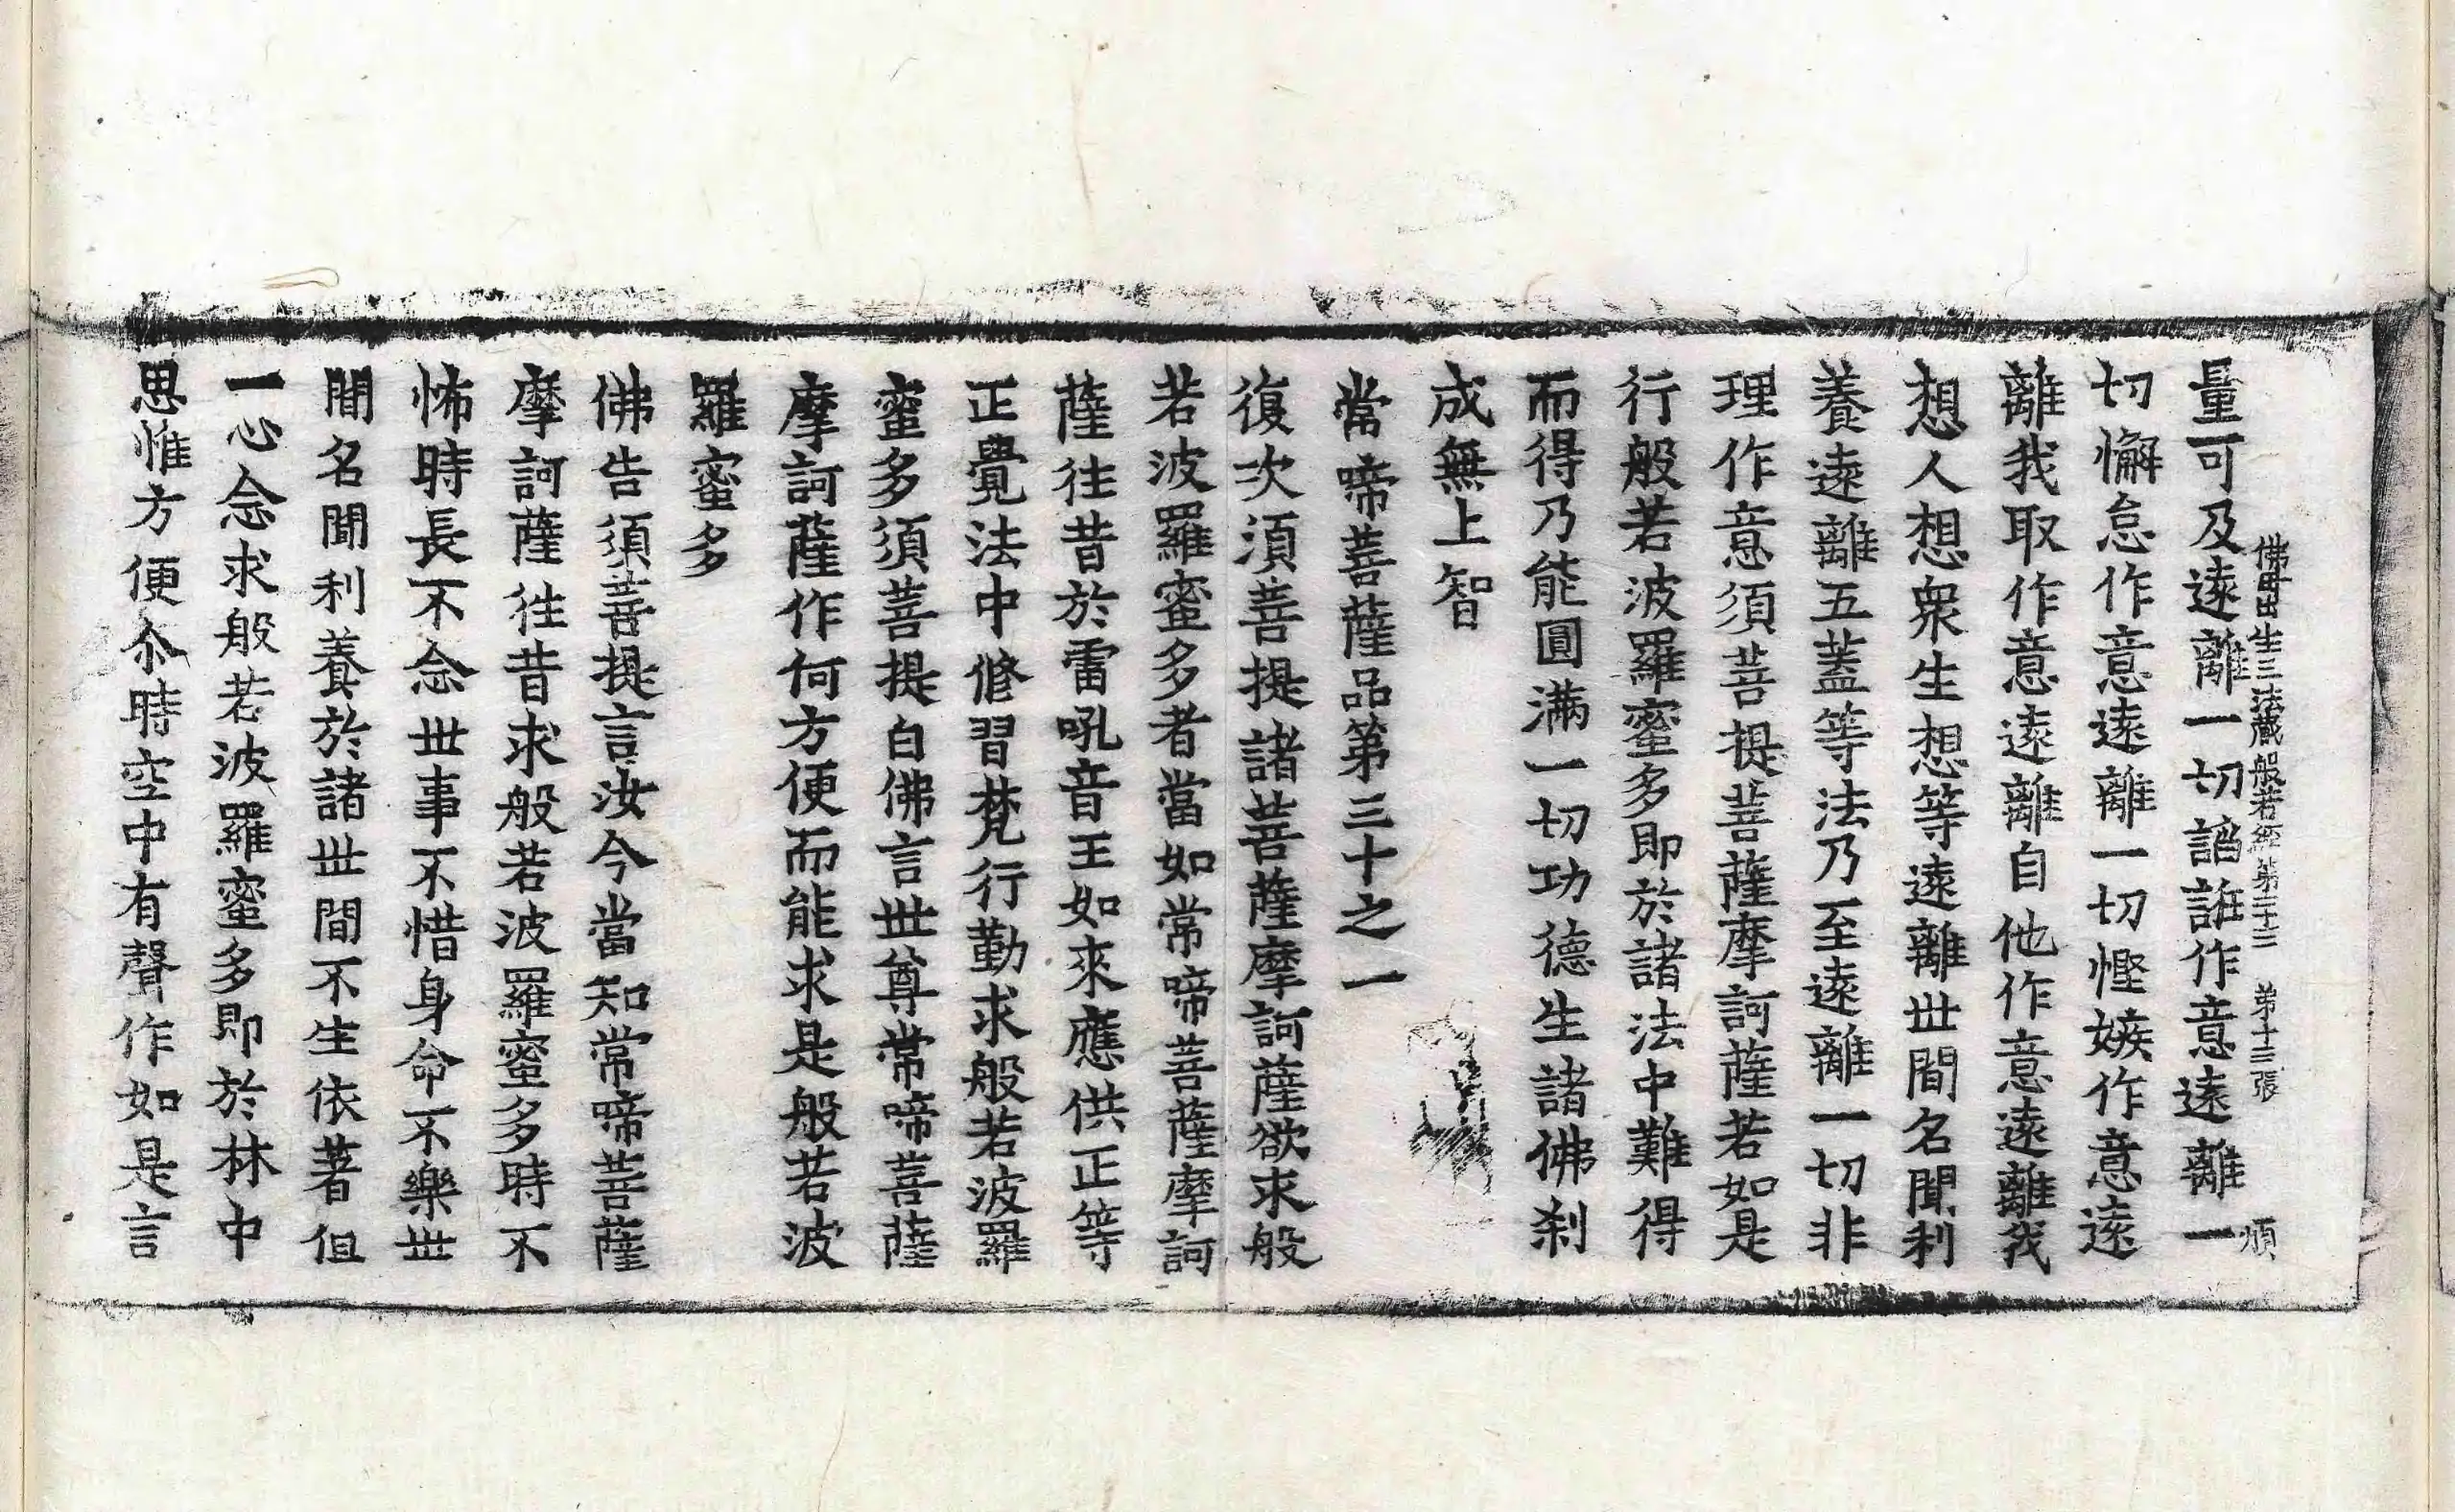 佛母出生三法藏般若經第二十三　第十三張　煩
量可及遠離一切諂誑作意遠離一
切懈怠作意遠離一切慳嫉作意遠
離我取作意遠離自他作意遠離我
想人想衆生想等遠離世間名聞利
養遠離五蓋等法乃至遠離一切非
理作意須菩提菩薩摩訶薩若如是
行般若波羅蜜多即於諸法中難得
而得乃能圓滿一切功德生諸佛刹
成無上智
常啼菩薩品第三十之一
復次須菩提諸菩薩摩訶薩欲求般
若波羅蜜多者當如常啼菩薩摩訶
薩往昔於雷吼音王如來應供正等
正覺法中修習梵行勤求般若波羅
蜜多須菩提白佛言世尊常啼菩薩
摩訶薩作何方便而能求是般若波
羅蜜多
佛告須菩提言汝今當知常啼菩薩
摩訶薩往昔求般若波羅蜜多時不
怖時長不念世事不惜身命不樂世
間名聞利養於諸世間不生依著但
一心念求般若波羅蜜多即於林中
思惟方便尒時空中有聲作如是言